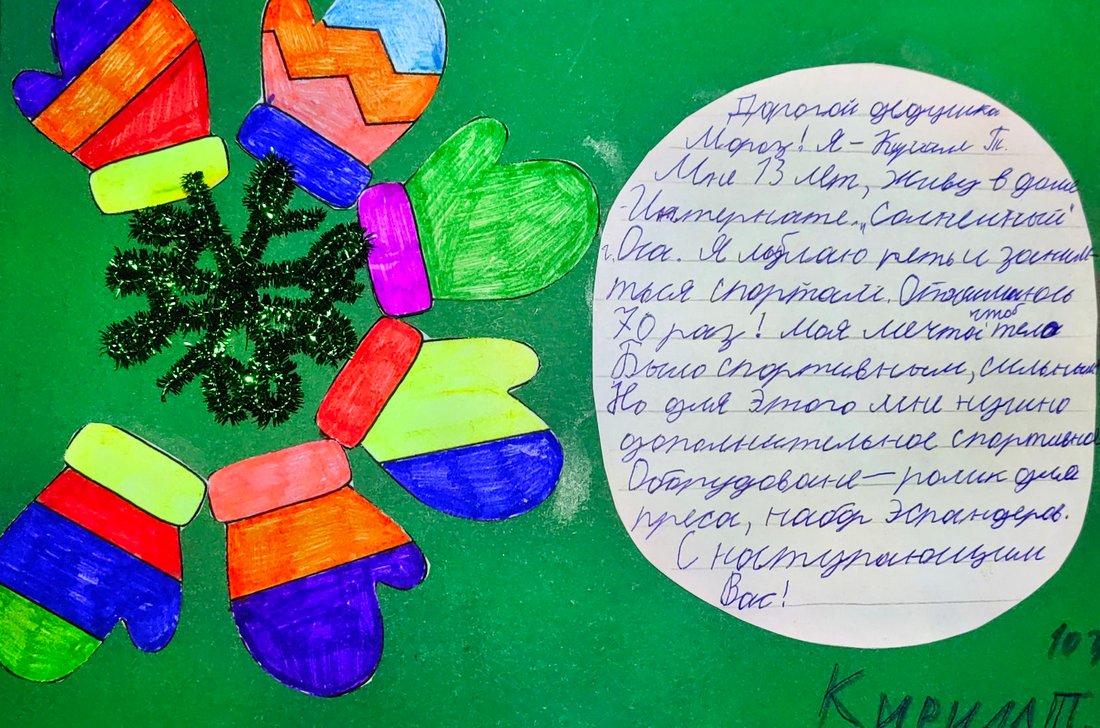 Дорогой дедушка
Мороз! Я - Кирилл Т.
Мне 13 лет, живу в доме
-Интернате „Солнечный"
г. Оса. Я люблаю петь и занима-
ться спортам. Отжимаюсь
70 раз! Моя мечта чтоб тело
Было спортивным, сильным
Но для этого мне нужно
дополнительное спортивное
Оборудоване - ролик для
преса, набор эспандеров.
С наступающим
Вас!
107
Кирилл Т.